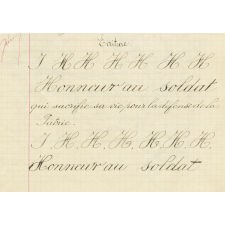 Ecriture
J H H H H H H
Honneur au soldat
qui sacrifie sa vie pour la défense de la
Patrie.
J. H. H. H. H. H. H.
Honneur au soldat